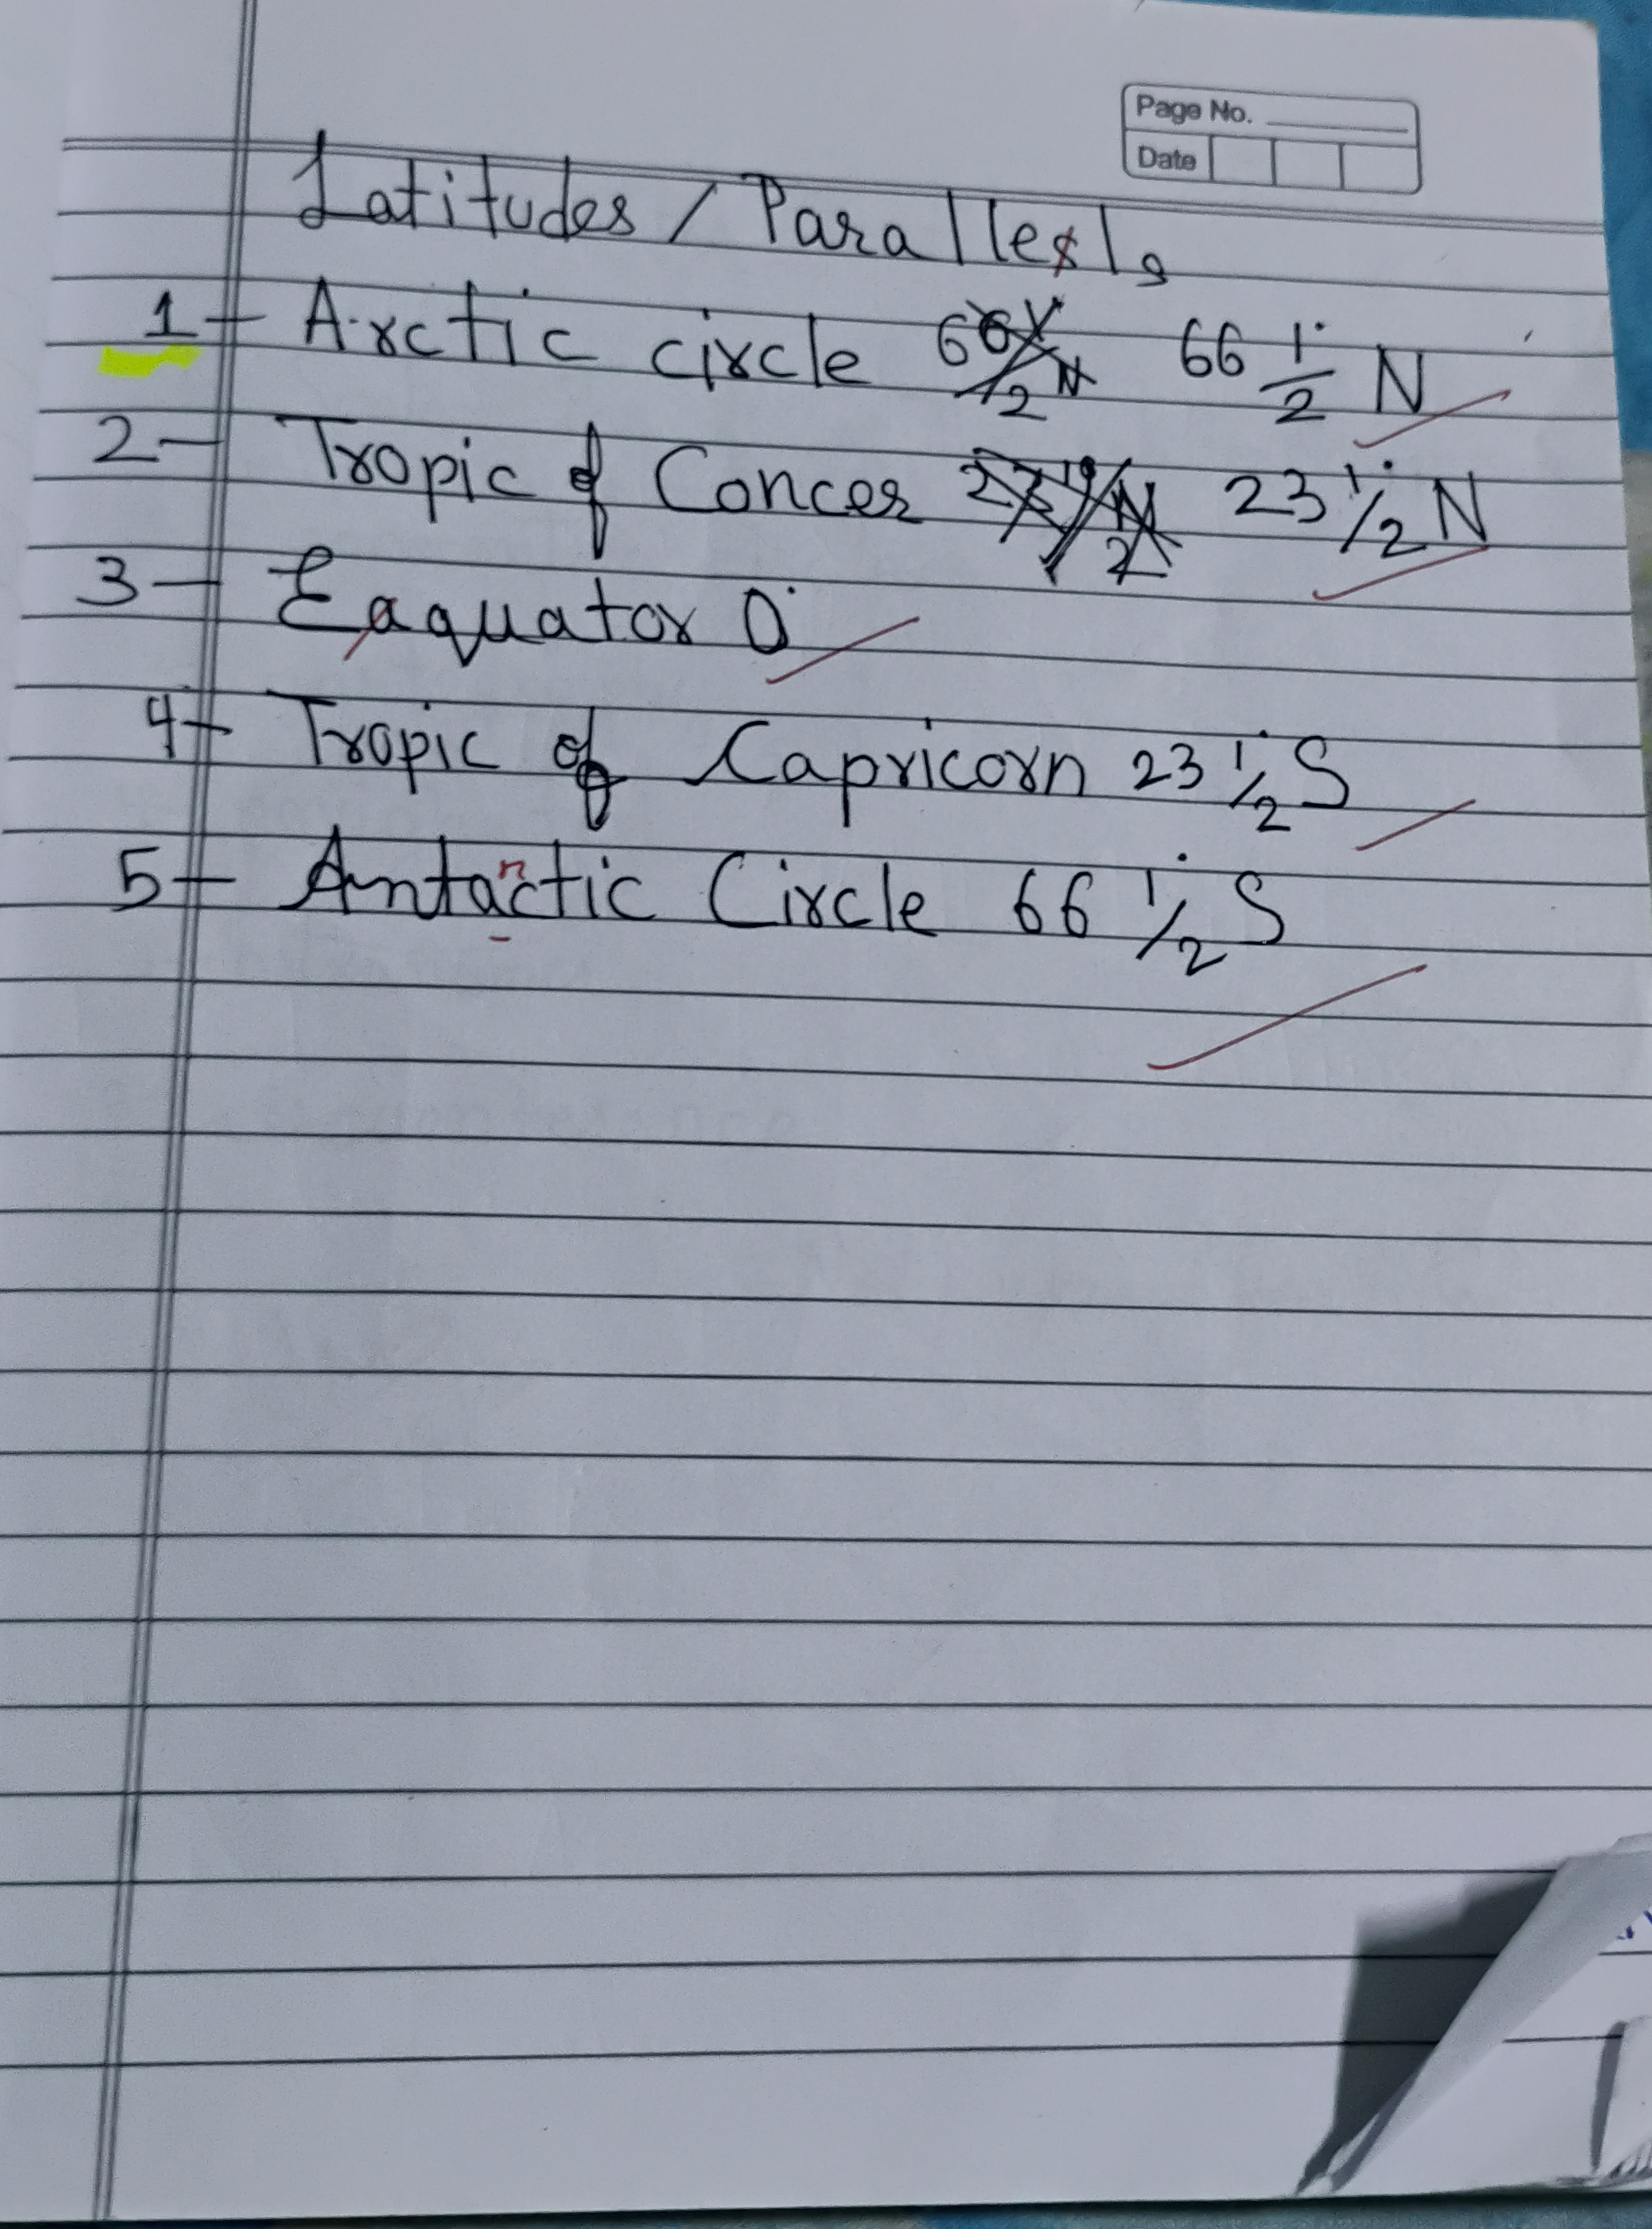 Page No.
Date
Latitudes / Parallels
1- Arctic circle 66 1/2° N
2- Tropic of Concer 23 1/2° N
3- Eaquator 0°
4- Tropic of Capricorn 23 1/2° S
5- Antarctic Circle 66 1/2° S